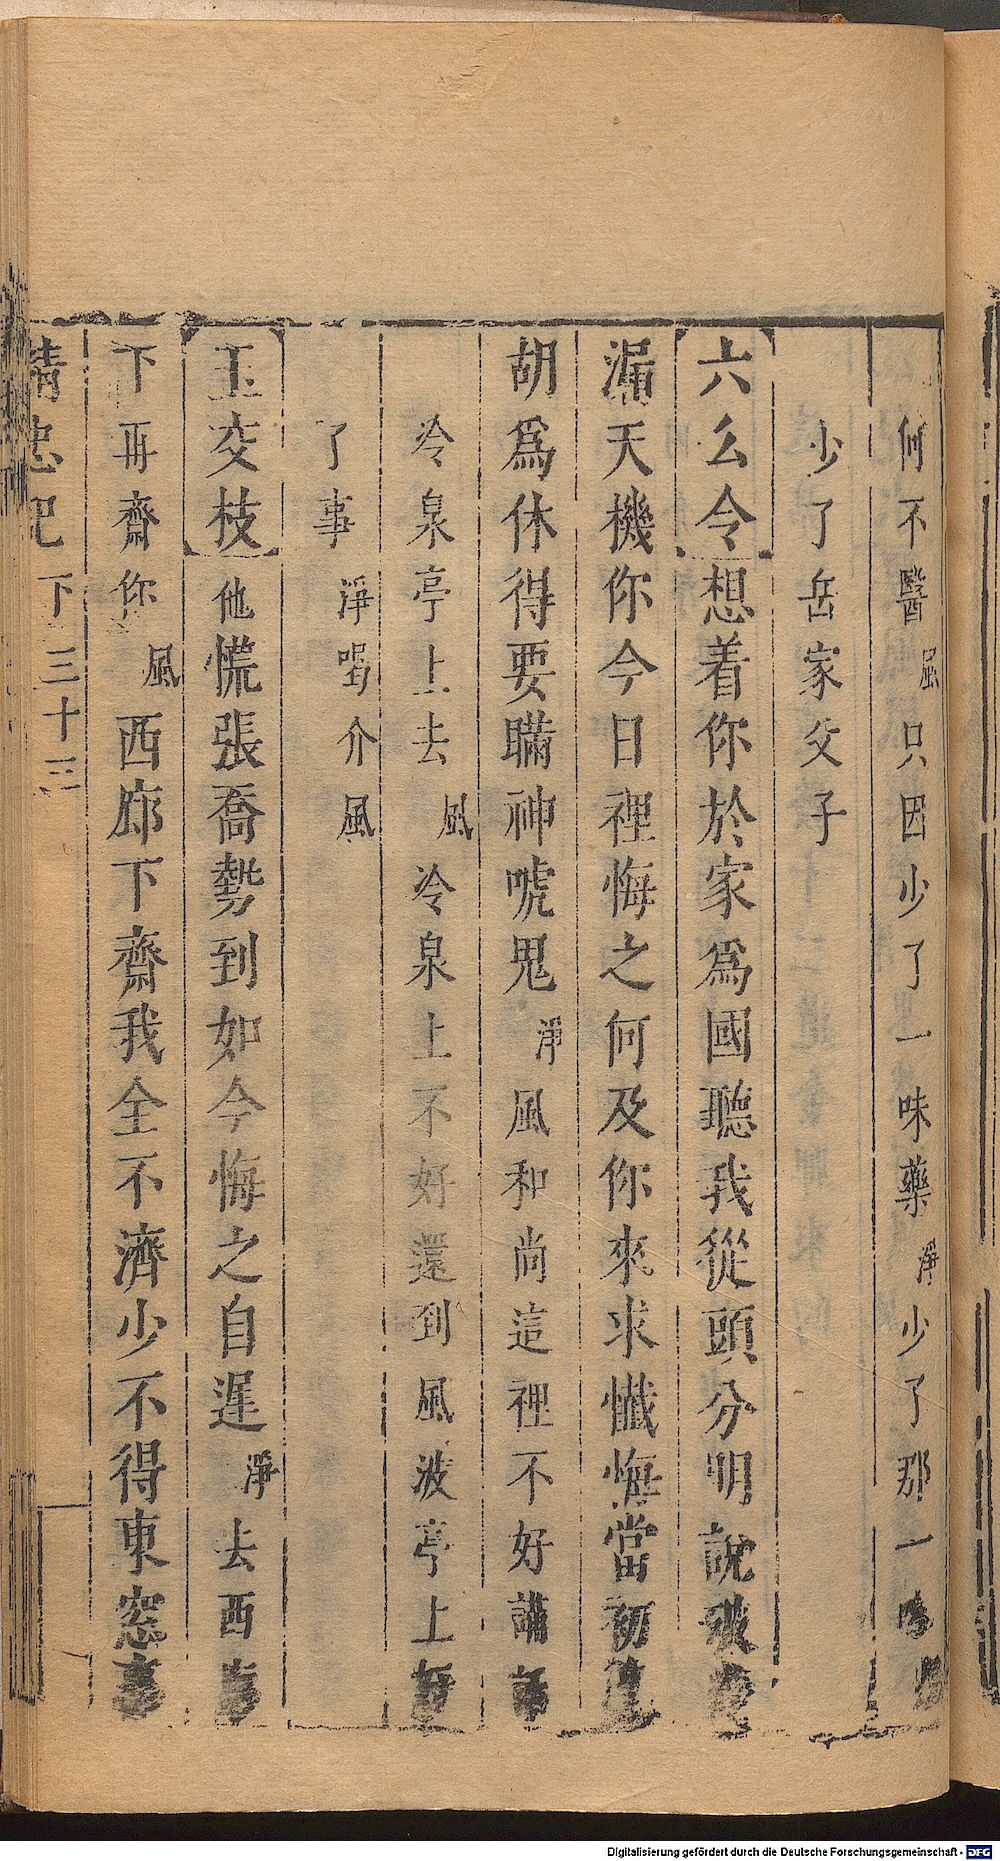 何不醫風只因少了一味藥淨少了那一
少了岳家父子
六么令想着你於家為國聽我從頭分明說破
漏天機你今日裡悔之何及你來求懺悔當初
胡為休得要瞞神唬鬼淨風和尚這裡不好講
冷泉亭上去風冷泉上不好還到風波亭上
了事淨喝介風
玉交枝他慌張喬勢到如今悔之自遲淨去西
下再齋你風西廊下齋我全不濟少不得東窓
精忠記下三十三
Digitalisierung gefördert durch die Deutsche Forschungsgemeinschaft - DFG